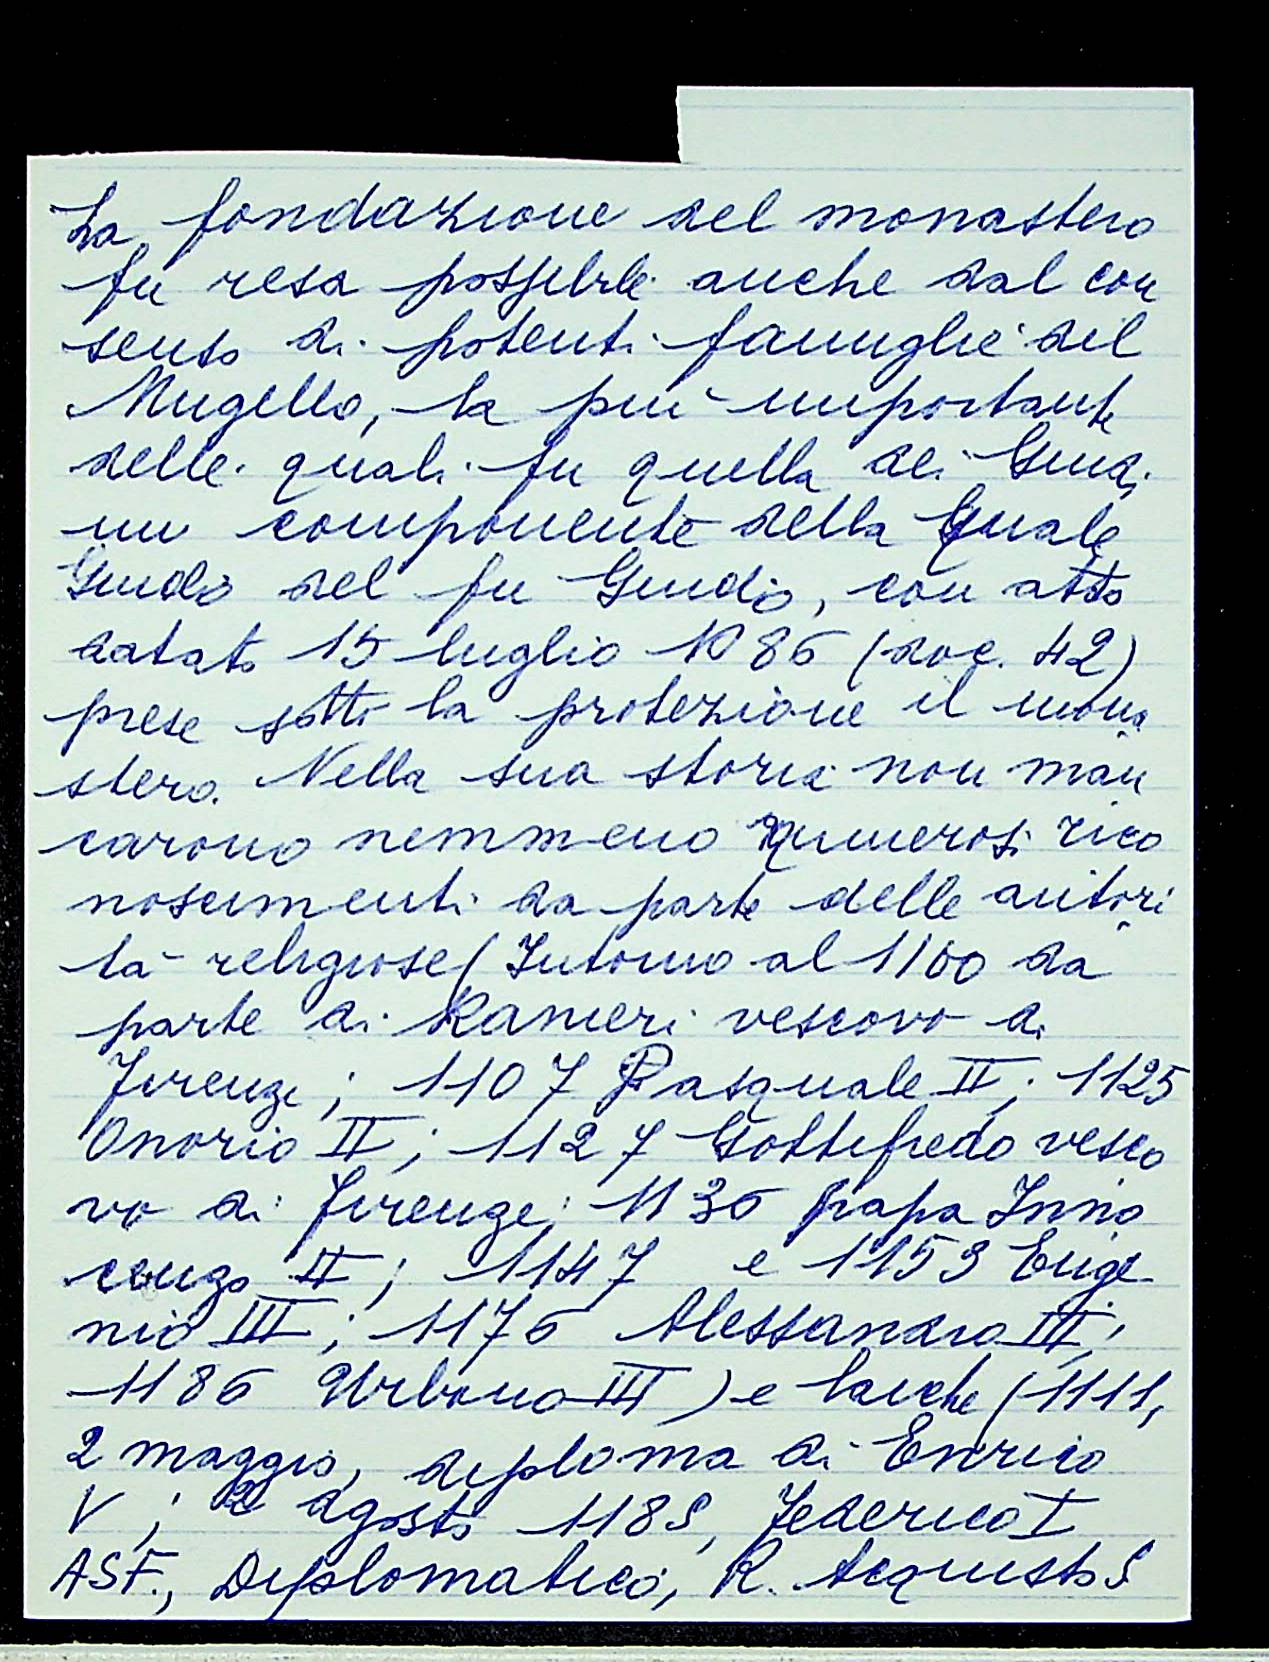 La fondazione del monastero
fu resa possibile anche dal con
senso di potenti famiglie del
Mugello, la più importante
delle quali fu quella dei Guidi
un componente della quale
Guido del fu Guido, con atto
datato 15 luglio 1086 (doc. 42)
prese sotto la protezione il mona
stero. Nella sua storia non man
carono nemmeno numerosi rico
noscimenti da parte delle autori
tà religiose (Intorno al 1100 da
parte di Ranieri vescovo di
Firenze; 1107 Pasquale II; 1125
Onorio II; 1127 Gottifredo vesco
vo di Firenze; 1136 papa Inno
cenzo II; 1147 e 1153 Euge
nio III; 1176 Alessandro III;
1186 Urbano III) e laiche (1111,
2 maggio, diploma di Enrico
V; 2 agosto 1185, Federico I
ASF., Diplomatico, R. Acquisto S